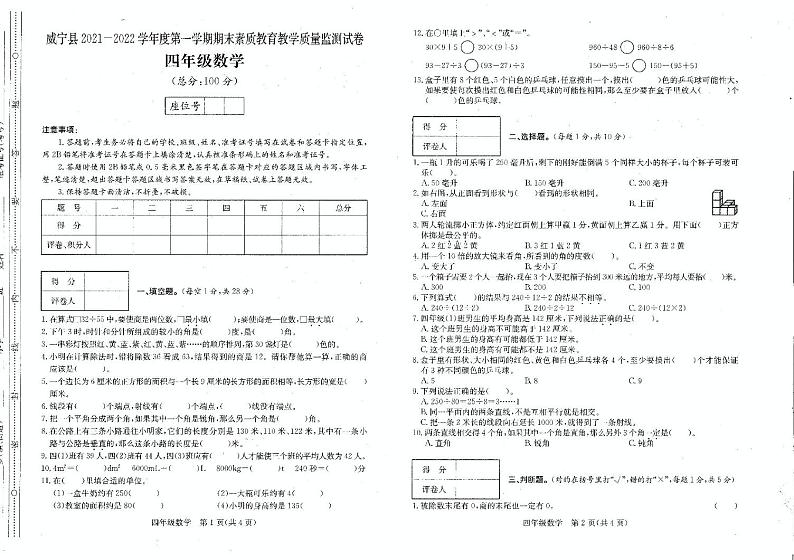 威宁县2021-2022学年度第一学期期末素质教育教学质量监测试卷
四年级数学
(总分:100分)
座位号
注意事项:
1.答题前,考生务必将自己的学校、班级、姓名、准考证号填写在试卷和答题卡指定位置,
用2B铅笔将准考证号在答题卡上填涂清楚,认真核准条形码上的姓名和准考证号。
2.答题时使用2B铅笔或0.5毫米黑色签字笔在答题卡对应的答题区域内书写,字体工
整,笔迹清楚,超出答题卡答题区域书写答案无效,在草稿纸、试卷上答题无效。
3.保持答题卡面清洁,不折叠,不破损。
题号 一 二 三 四 五 六 总分
得分
评卷、积分人
得分
评卷人
一、填空题。(每空1分,共28分)
1.在算式□32÷55中,要使商是两位数,□最小填( );要使商是一位数,□最大填( )。
2.下午3时,时针和分针所组成的较小的角是( )度,是( )角。
3.一串彩灯按照红、黄、蓝、紫、红、黄、蓝、紫……的顺序排列,第30盏灯是( )色的。
4.小明在计算除法时,错将除数36看成63,结果得到的商是12。请你帮他算一算,正确的商
应该是( )。
5.一个边长为6厘米的正方形的面积与一个长9厘米的长方形的面积相等,长方形的宽是( )
厘米。
6.线段有( )个端点,射线有( )个端点,( )线没有端点。
7.把一个平角分成两个角,如果其中一个角是锐角,那么另一个角是( )角。
8.在公路上有三条小路通往小明家,它们的长度分别是130米、110米、122米,其中有一条小
路与公路是垂直的,那么这条小路的长度是( )米。
9.四(1)班有39人,四(2)班有44人,四(3)班应有( )人才能使三个班的平均人数为42人。
10.4m²=( )dm² 6000mL=( )L 8000kg=( )t 240秒=( )分
11.在( )里填合适的单位。
(1)一盒牛奶约有250( ) (2)一大瓶可乐约有4( )
(3)教室的面积约是80( ) (4)小明的身高约是135( )
四年级数学 第1页(共4页)
12.在○里填上“>”、“<”或“=”。
30×9÷5○30×(9÷5) 960÷48○960÷8÷6
93-27÷3○(93-27)÷3 150-95-5○150-(95+5)
13.盒子里有8个红色、5个白色的乒乓球,任意摸出一个,摸出( )色的乒乓球可能性大,
如果要使每次摸出红色和白色乒乓球的可能性相同,那么至少要在盒子里放入( )个
( )色的乒乓球。
得分
评卷人
二、选择题。(每题1分,共10分)
1.一瓶1升的可乐喝了250毫升后,剩下的刚好能倒满5个同样大小的杯子,每个杯子可装可
乐( )。
A.50毫升 B.150毫升 C.200毫升
2.如右图,从正面看到形状与( )看到的形状相同。
A.左面 B.上面
C.右面
3.两人轮流掷小正方体,约定红面朝上算甲赢1分,黄面朝上算乙赢1分。用下面( )正方
体掷是最公平的。
A.2红2蓝2黄 B.3红1蓝2黄 C.1红3蓝2黄
4.用一个10倍的放大镜来看角,所看到的角的度数( )。
A.变大了 B.变小了 C.不变
5.一个箱子需要2个人一起抬,现在3个人要把箱子抬到300米远的地方,平均每人要抬( )米。
A.300 B.200 C.100
6.下列算式( )的结果与240÷12÷2的结果不相等。
A.240÷(12÷2) B.240÷2÷12 C.240÷(12×2)
7.四年级(1)班男生的平均身高是142厘米,下列说法正确的是( )。
A.这个班男生的身高不可能高于142厘米。
B.这个班男生的身高有可能都低于142厘米。
C.这个班男生的身高有可能都不是142厘米。
8.盒子里有形状、大小相同的红色、黄色和白色乒乓球各4个,至少要摸出( )个才能保证
有3种不同颜色的乒乓球。
A.5 B.8 C.9
9.下列说法正确的是( )。
A.250÷80=25÷8=3……1
B.同一平面内的两条直线,不是互相平行就是相交。
C.把一条2米长的线段向右延长1000米,就得到了一条射线。
10.两条直线相交得4个角,如果其中一个角是直角,那么另外3个角一定是( )。
A.直角 B.锐角 C.钝角
得分
评卷人
三、判断题。(对的在括号里打“√”,错的打“×”,每题1分,共5分)
1.被除数末尾有0,商的末尾也一定有0。 ( )
四年级数学 第2页(共4页)